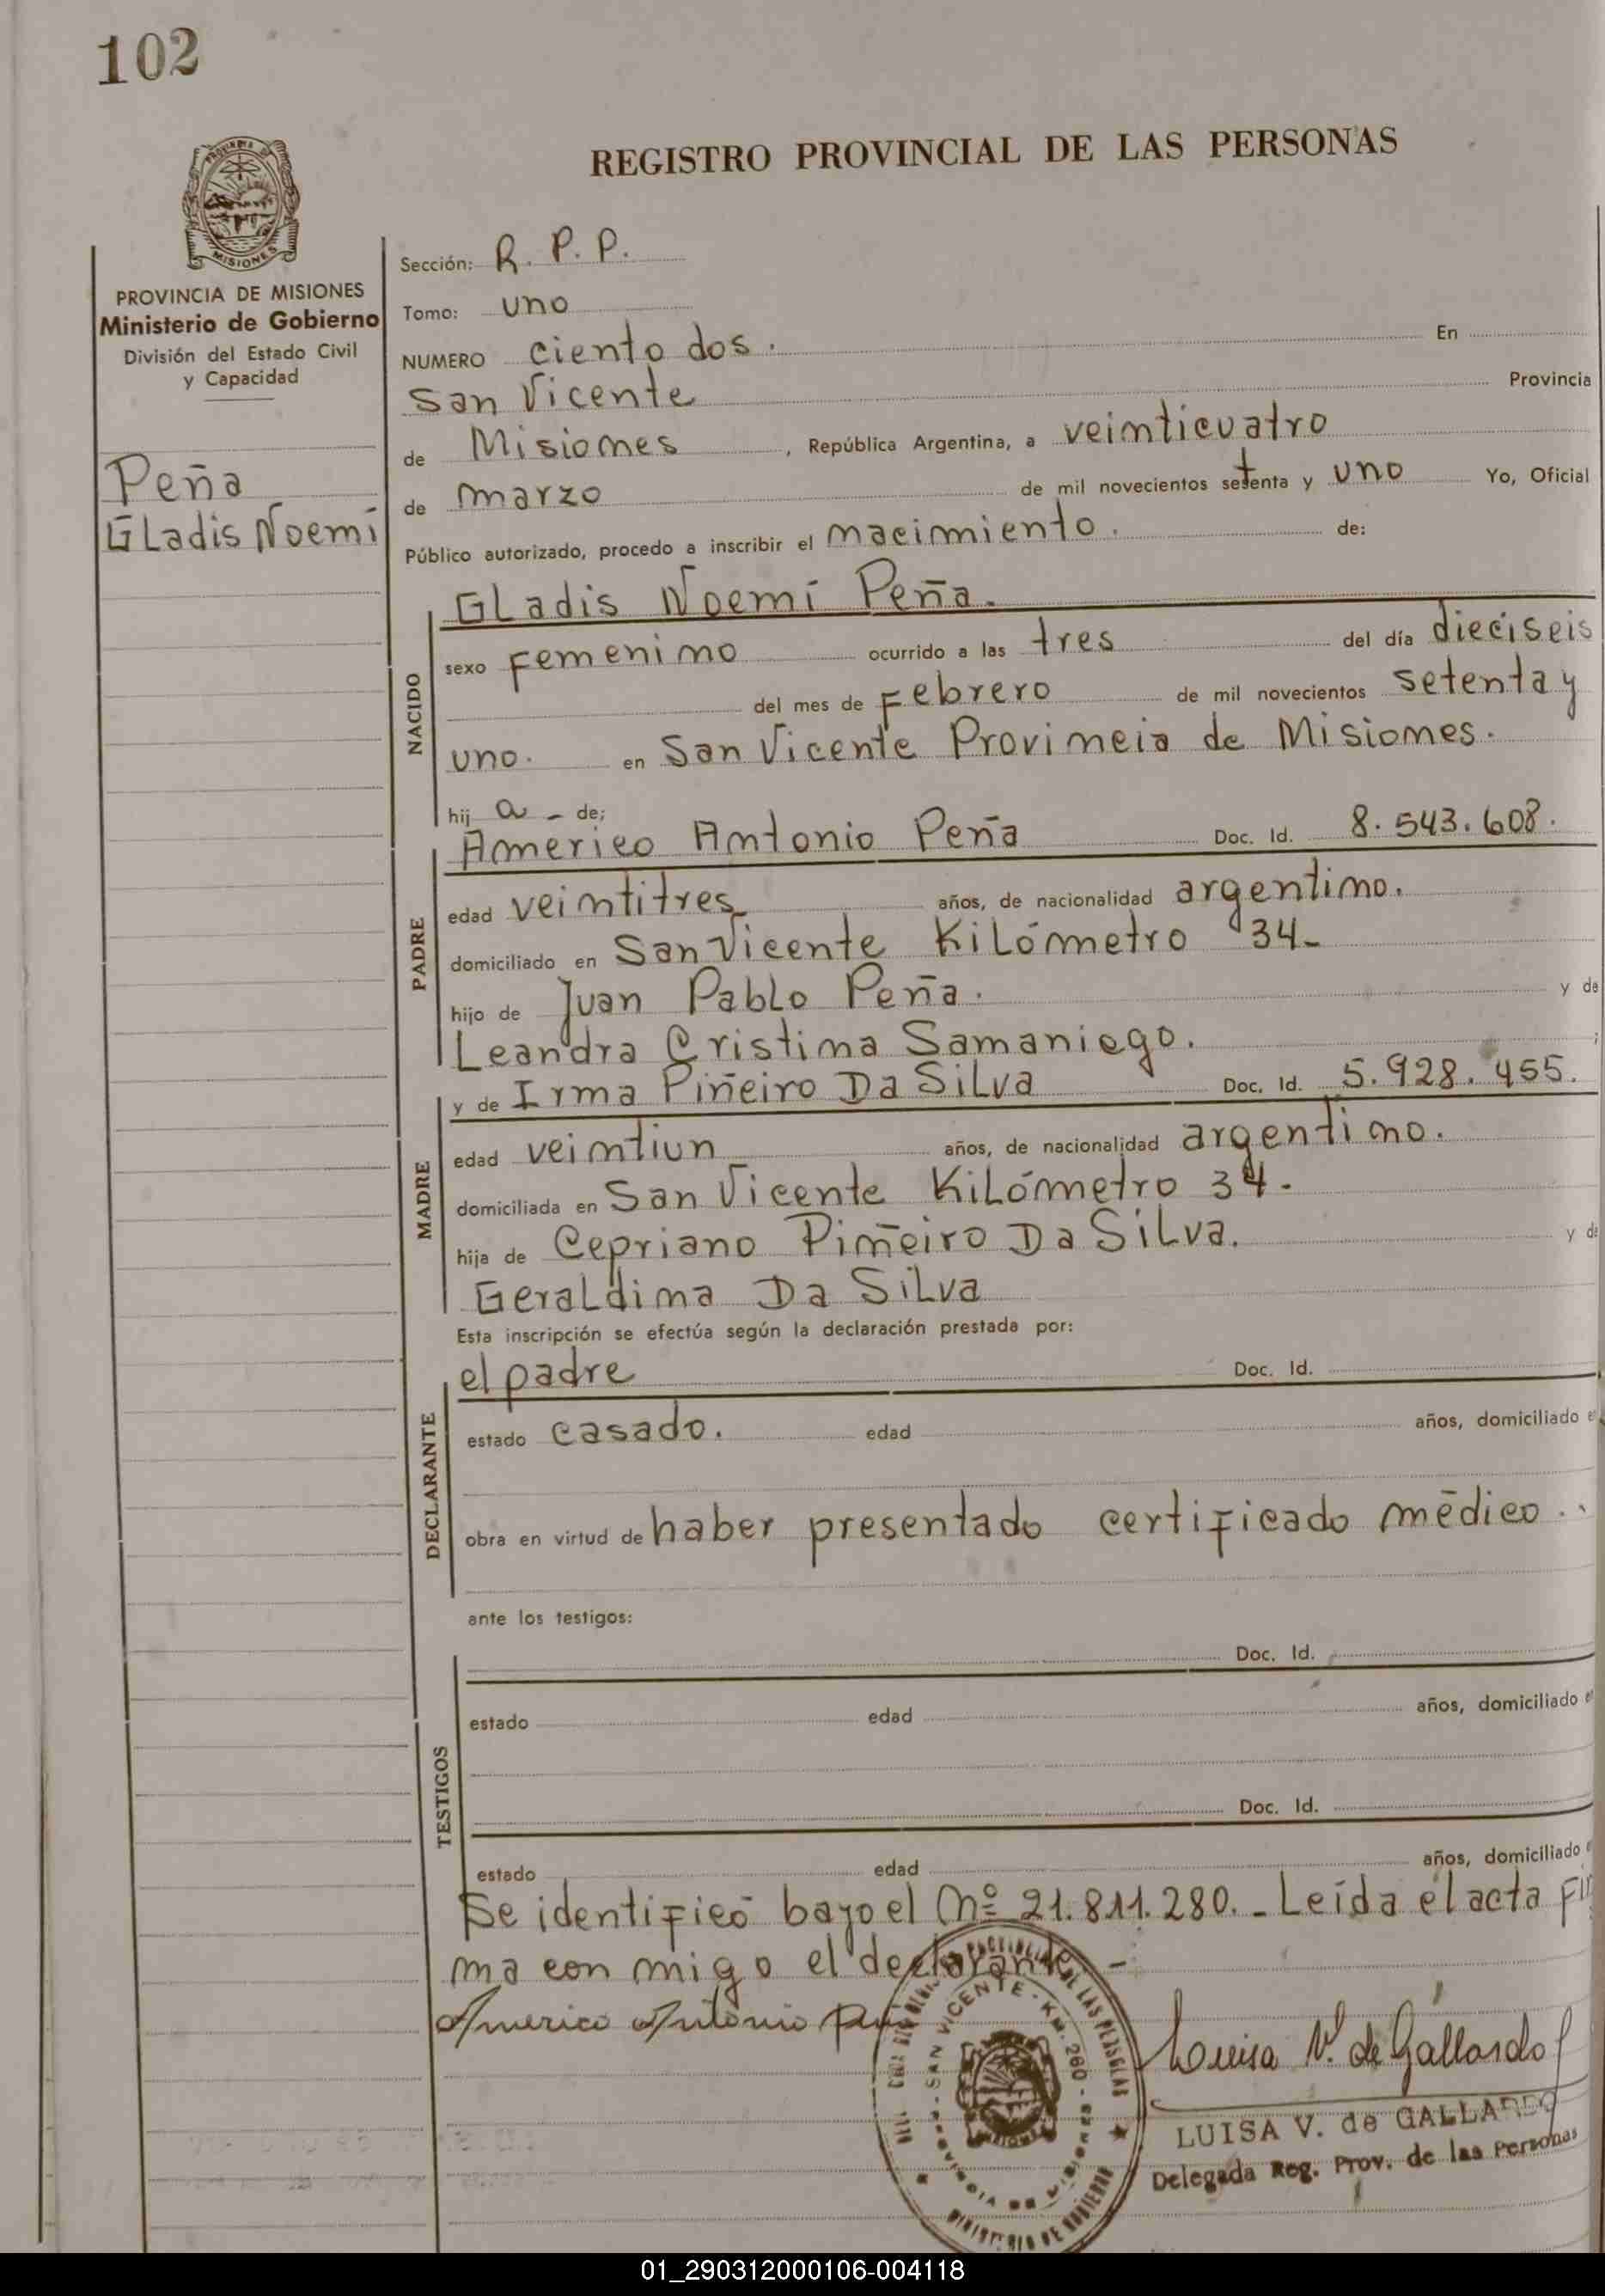 102
REGISTRO PROVINCIAL DE LAS PERSONAS
MISIONES
PROVINCIA DE MISIONES
Ministerio de Gobierno
División del Estado Civil
y Capacidad
Peña
Gladis Noemí
Sección: R. P. P.
Tomo: uno
NUMERO ciento dos. En
San Vicente Provincia
de Misiones, República Argentina, a veinticuatro
de marzo de mil novecientos setenta y uno Yo, Oficial
Público autorizado, procedo a inscribir el nacimiento. de:
NACIDO
Gladis Noemí Peña.
sexo Femenino ocurrido a las tres del día dieciseis
del mes de Febrero de mil novecientos setenta y
uno. en San Vicente Provincia de Misiones.
hij a - de;
PADRE
Americo Antonio Peña Doc. Id. 8.543.608.
edad veintitres años, de nacionalidad argentino.
domiciliado en San Vicente Kilómetro 34-
hijo de Juan Pablo Peña. y de
Leandra Cristina Samaniego. ;
MADRE
y de Irma Piñeiro Da Silva Doc. Id. 5.928.455.
edad veintiun años, de nacionalidad argentino.
domiciliada en San Vicente Kilómetro 34-
hija de Cepriano Piñeiro Da Silva. y de
Geraldina Da Silva
Esta inscripción se efectúa según la declaración prestada por:
DECLARANTE
el padre Doc. Id.
estado casado. edad años, domiciliado e
obra en virtud de haber presentado certificado médico.
ante los testigos:
TESTIGOS
Doc. Id.
estado edad años, domiciliado e
Doc. Id.
estado edad años, domiciliado
Se identificó bajo el Nº 21.811.280.- Leída el acta Fir
ma con migo el declarante.-
Americo Antonio
SAN VICENTE - KM. 260 -
DE LAS PERSONAS
MINISTERIO DE GOBIERNO
Luisa V. de Gallardo
LUISA V. de GALLARDO
Delegada Reg. Prov. de las Personas
01_290312000106-004118